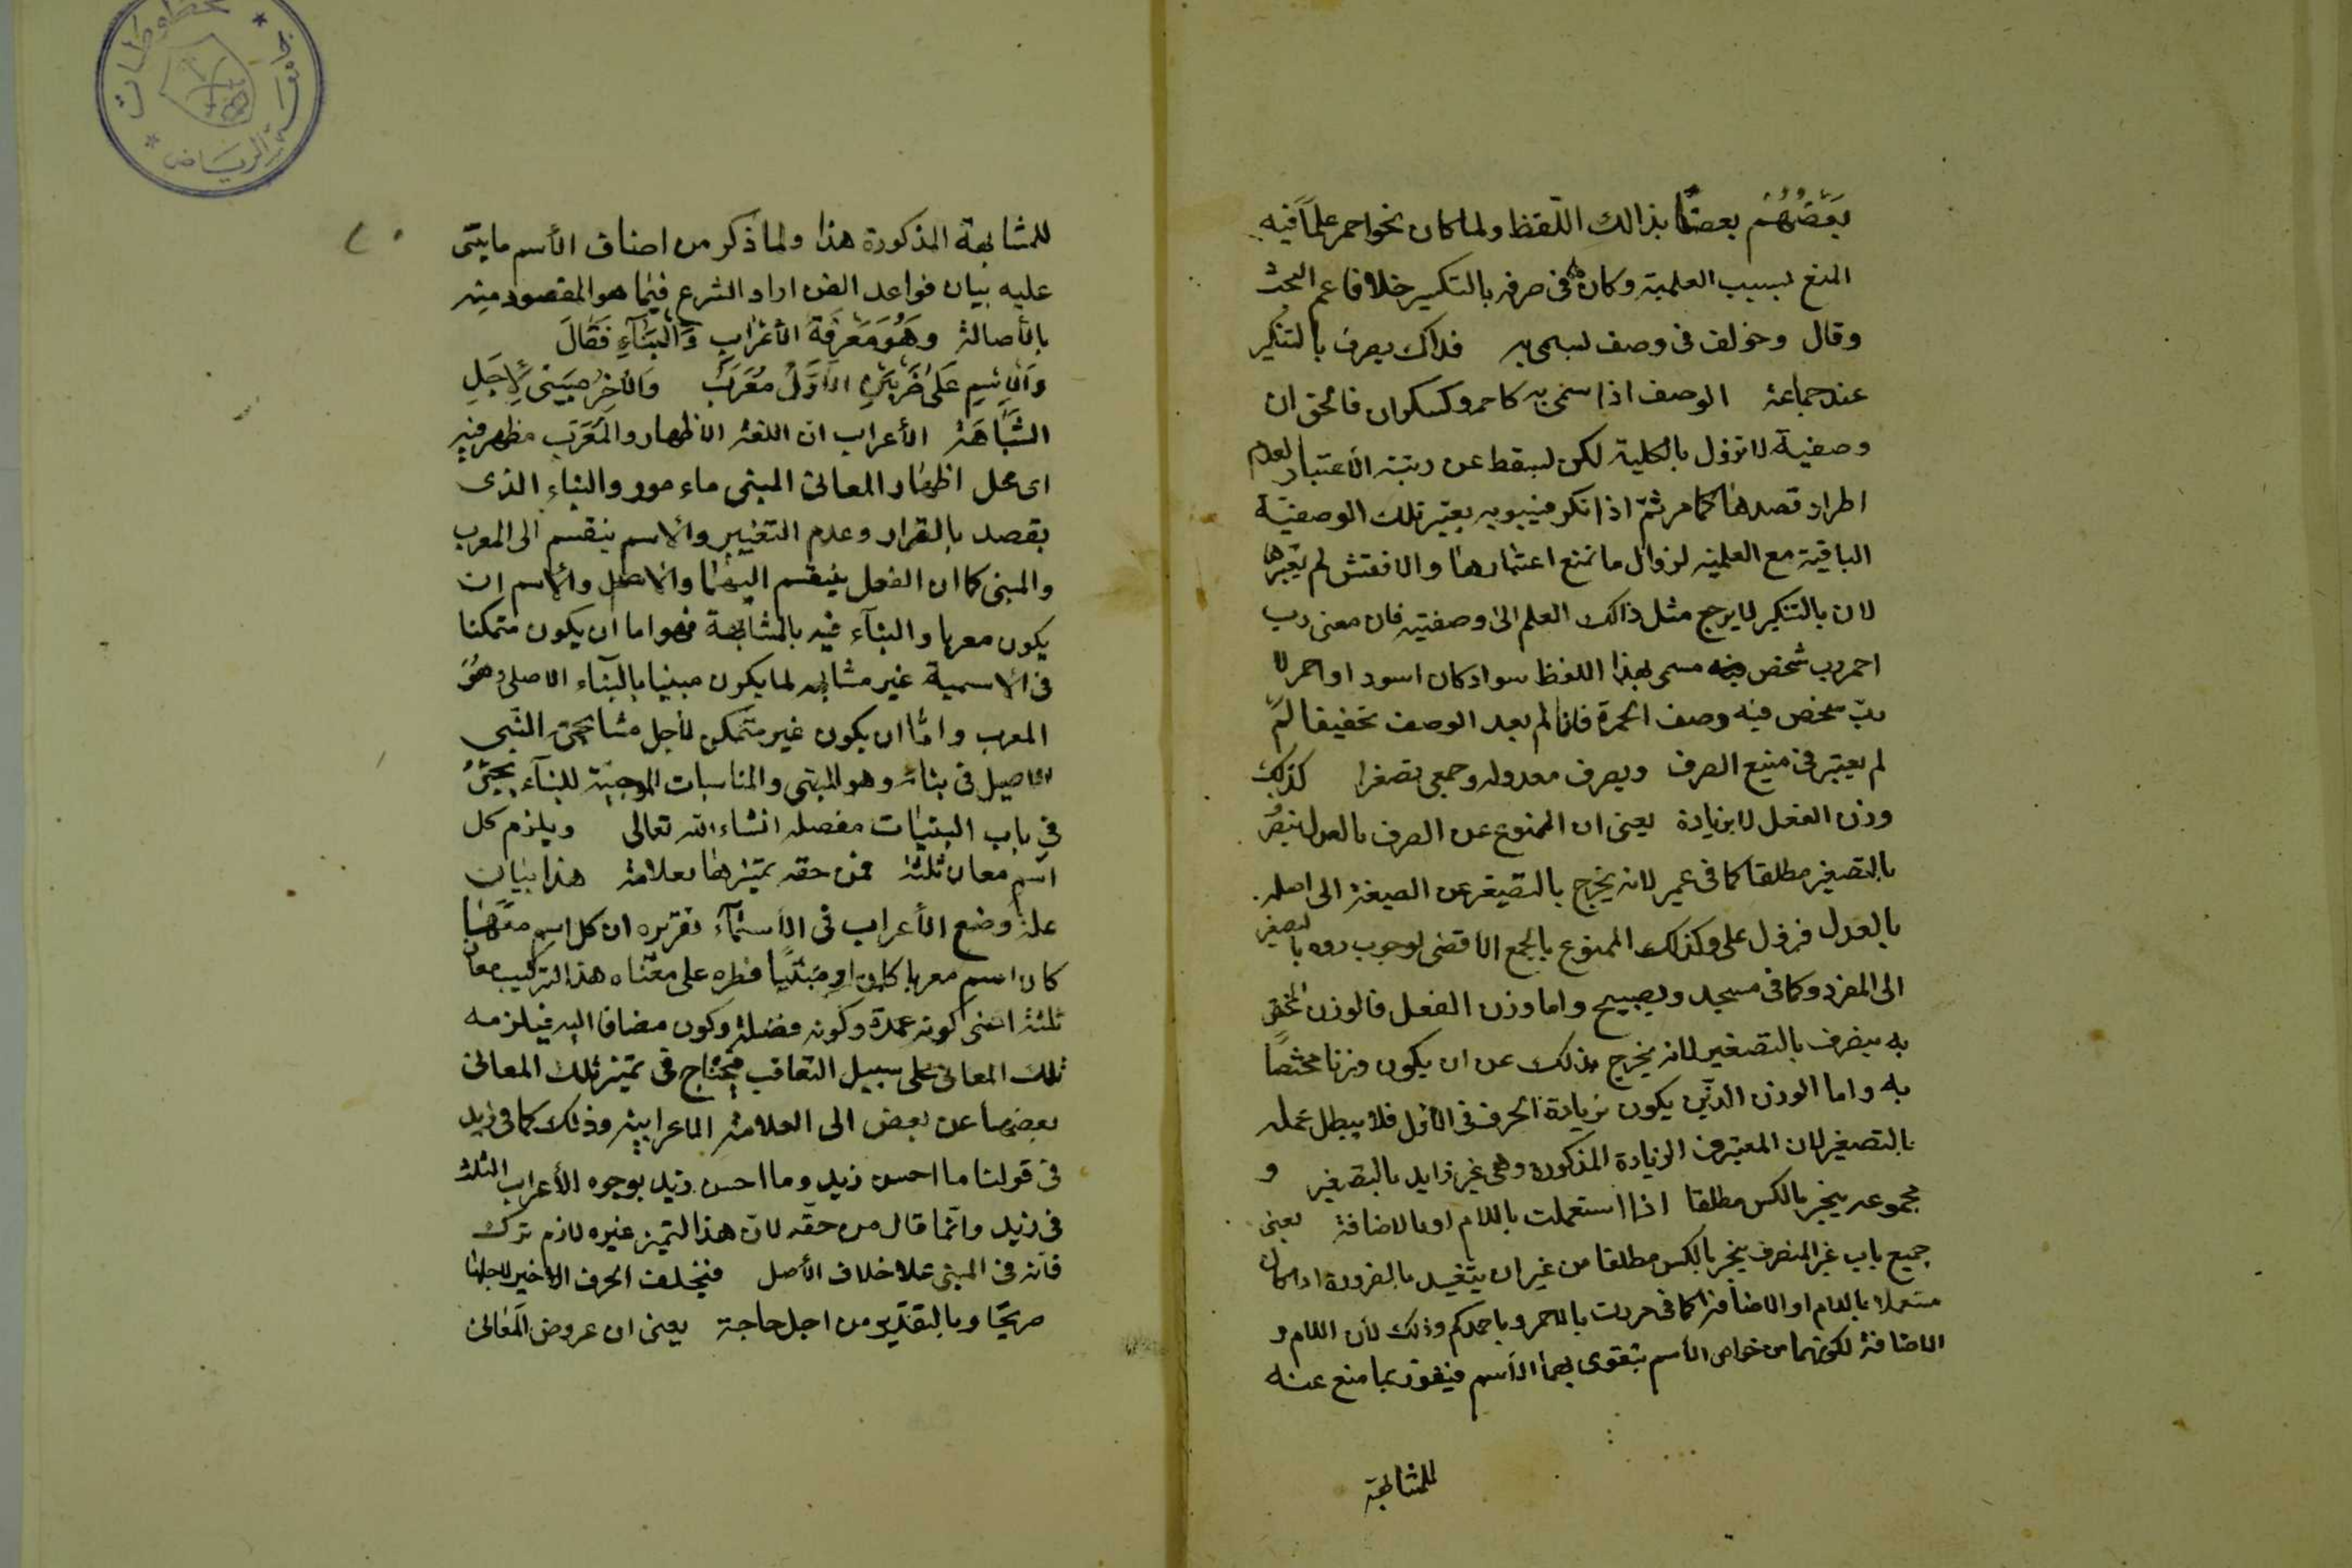 بعضهم بعضا بذالك اللفظ ولما كان نحو احمر علما فيه
المنع لسبب العلمية وكان فى صرفه بالتكسير خلافا عم البحث
وقال وخولف فى وصف لسمى به فذاك يصرف بالتنكير
عند جماعة الوصف اذا سمى به كاحمر وكسكران فالحق ان
وصفية لا تزول بالكلية لكن لسقط عن رتبة الأعتبار لعدم
اطراد قصدها كما مر ثم اذا نكر فيبويه يعتبر تلك الوصفية
الباقية مع العلمية لزوال ما تمنع اعتبارها والاخفش لم يعتبرها
لان بالتنكير لا يرجع مثل ذالك العلم الى وصفيته فان معنى رب
احمر رب شخص مسمى بهذا اللفظ سواد كان اسود او احمر لا
رب شخص فيه وصف الحمرة فلما لم بعد الوصف تحقيقا لم
لم يعتبر فى منيع الصرف ويصرف معدوله وجمعى بصغرا كذلك
وزن الفعل لا بزيادة يعنى ان الممنوع عن الصرف بالعدل ينصر
بالتصغير مطلقا كما فى عمير لانه يخرج بالتصيغر عن الصيغة الى اصله
بالعدل فزول على وكذلك الممنوع بالجمع الاقصى لوجوب رده بالتصغير
الى المفرد وكما فى مسيجد ويصبيح واما وزن الفعل فالوزن المختص
به ينصرف بالتصغير لانه يخرج بذلك عن ان يكون وزنا مختصا
به واما الوزن الذين يكون بزيادة الحرف فى الأول فلا يبطل عمله
بالتصغير لان المعتبر فى الزيادة المذكورة وهى غير زايد بالتصغير و
مجموعه ينجر بالكس مطلقا اذا استعملت باللام او بالاضافة يعنى
جميع باب غير المنصرف ينجر بالكس مطلقا من غير ان يتقيد بالضرورة اذا كان
مستعملا باللام او الاضافة كما فى مررت بالاحمر وباحمدكم وذلك لأن اللام و
الاضافة لكونهما من خواص الأسم يتقوى بهما الأسم فيقوى بما منع عنه
للمشابهة
للمشابهة المذكورة هذا ولما ذكر من اصناف الأسم ما يبتنى
عليه بيان قواعد الفن اراد الشرع فيما هو المقصود منه
بالأصالة وهو معرفة الأعراب والبناء فقال
والاسم على ضربين الأول معرب والآخر مبنى لأجل
الشباهة الأعراب ان اللغة الأظهار والمعرب مظهر فيه
اى محل اظهار المعانى المبنى ماء مور والبناء الذى
يقصد بالقرار وعدم التغيير والاسم ينقسم الى المعرب
والمبنى كما ان الفعل ينقسم اليهما والاصل والاسم ان
يكون معربا والبناء فيه بالمشابهة فهو اما ان يكون متمكنا
فى الاسمية غير مشابه لما يكون مبنيا بالبناء الاصلى وهو
المعرب واما ان يكون غير متمكن لأجل مشابهته النبى
الاصيل فى بنائه وهو المبنى والمناسبات الموجبة للبناء يجئ
فى باب البنيات مفصله انشاء الله تعالى ويلزم كل
اسم معان ثلثة فمن حقه تميزها بعلامة هذا بيان
علة وضع الأعراب فى الأسماء تقريره ان كل اسم
كان اسم معربا كان او مبنيا فطره على معناه هذا التركيب معان
ثلثة اعنى كونه عمدة وكونه فضلة وكون مضافا اليه فيلزمه
تلك المعانى على سبيل التعاقب فيحتاج فى تميز تلك المعانى
بعضها عن بعض الى العلامة الماعرابية وذلك كما فى زيد
فى قولنا ما احسن زيد وما احسن زيد بوجوه الأعراب الثلث
فى زيد وانما قال من حقه لان هذا التميز غيره لازم ترك
فانه فى المبنى علا خلاف الأصل فيختلف الحرف الاخير لاجلها
صريحا وبالتقدير من اجل حاجة يعنى ان عروض المعانى